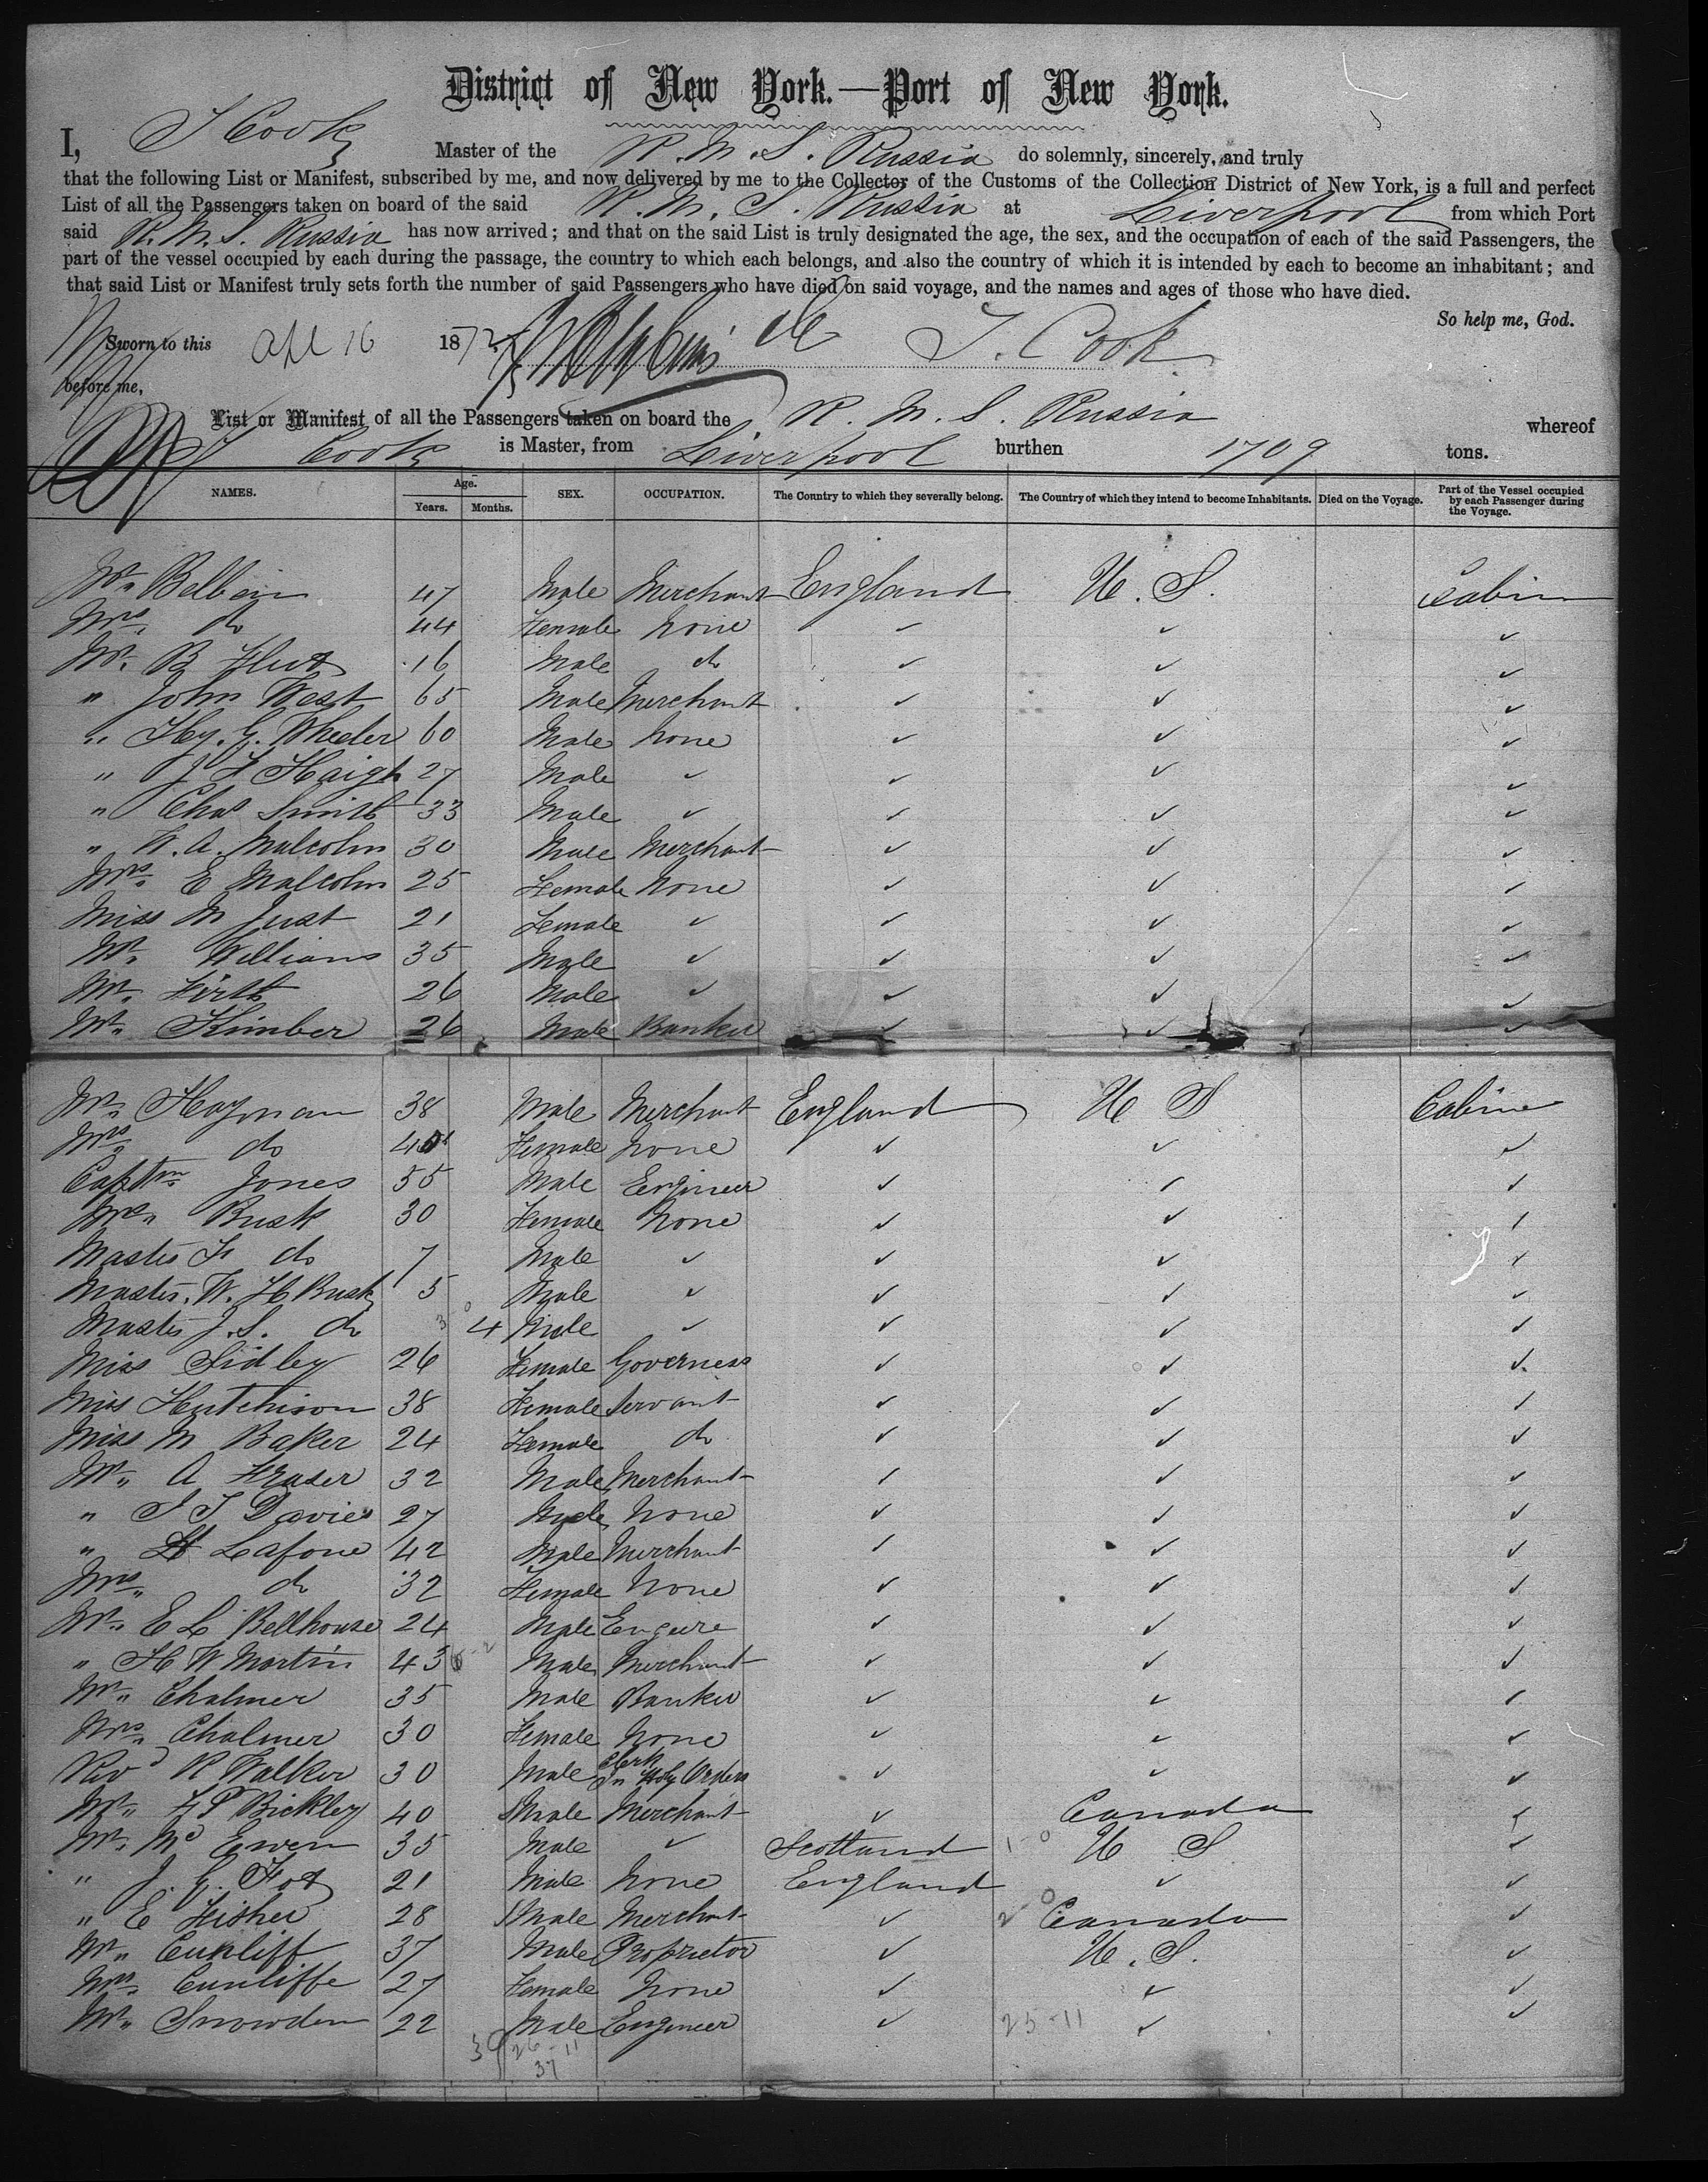 District of New York.—Port of New York.
I, J Cook Master of the R. M. S. Russia do solemnly, sincerely, and truly
that the following List or Manifest, subscribed by me, and now delivered by me to the Collector of the Customs of the Collection District of New York, is a full and perfect
List of all the Passengers taken on board of the said R. M. S. Russia at Liverpool from which Port
said R. M. S. Russia has now arrived; and that on the said List is truly designated the age, the sex, and the occupation of each of the said Passengers, the
part of the vessel occupied by each during the passage, the country to which each belongs, and also the country of which it is intended by each to become an inhabitant; and
that said List or Manifest truly sets forth the number of said Passengers who have died on said voyage, and the names and ages of those who have died.
So help me, God.
Sworn to this Apl 16 1872 J. Cook
before me,
List or Manifest of all the Passengers taken on board the R. M. S. Russia whereof
Cook is Master, from Liverpool burthen 1709 tons.
NAMES. Age. Years. Months. SEX. OCCUPATION. The Country to which they severally belong. The Country of which they intend to become Inhabitants. Died on the Voyage. Part of the Vessel occupied by each Passenger during the Voyage.
Mr. Belbein 47 Male Merchant England U. S. Cabin
Mrs. do 44 Female None ✓ ✓ ✓
Mr. B 16 Male do ✓ ✓ ✓
" John West 65 Male Merchant ✓ ✓ ✓
" Hy. G. Wheeler 60 Male None ✓ ✓ ✓
" J F Haigh 27 Male ✓ ✓ ✓ ✓
" Chas Smith 33 Male ✓ ✓ ✓ ✓
" W. A. Malcolm 30 Male Merchant ✓ ✓ ✓
Mrs. E Malcolm 25 Female None ✓ ✓ ✓
Miss M Just 21 Female ✓ ✓ ✓ ✓
Mr. Williams 35 Male ✓ ✓ ✓ ✓
Mr. Firth 26 Male ✓ ✓ ✓ ✓
Mr. Kimber 26 Male Banker ✓ ✓ ✓
Mr. Hayman 38 Male Merchant England U S Cabin
Mrs. do 40 Female None ✓ ✓ ✓
Captn. Jones 55 Male Engineer ✓ ✓ ✓
Mrs. Busk 30 Female None ✓ ✓ ✓
Master F do 7 Male ✓ ✓ ✓ ✓
Master. W. H Busk 5 Male ✓ ✓ ✓ ✓
Master J. S. do 4 Male ✓ ✓ ✓ ✓
Miss Sidley 26 Female Governess ✓ ✓ ✓
Miss Hutchison 38 Female Servant ✓ ✓ ✓
Miss M Baker 24 Female do ✓ ✓ ✓
Mr. A Fraser 32 Male Merchant ✓ ✓ ✓
" J T Davies 27 Male None ✓ ✓ ✓
" H Lafone 42 Male Merchant ✓ ✓ ✓
Mrs. do 32 Female None ✓ ✓ ✓
Mr. E L Bellhouse 24 Male ✓ ✓ ✓
" H W Martin 43 Male Merchant ✓ ✓ ✓
Mr. Chalmer 35 Male Banker ✓ ✓ ✓
Mrs. Chalmer 30 Female None ✓ ✓ ✓
Revd R Walker 30 Male Clerk in Holy Orders ✓ ✓ ✓
Mr. F P Bickley 40 Male Merchant ✓ Canada ✓
Mr. Mc Ewen 35 Male ✓ Scotland 1-0 U S ✓
" J. G. Fox 21 Male None England ✓ ✓
" E Fisher 28 Male Merchant ✓ 2-0 Canada ✓
Mr. Cunliff 37 Male Proprietor ✓ U. S. ✓
Mrs. Cunliffe 27 Female None ✓ ✓ ✓
Mr. Snowden 22 Male Engineer ✓ 25-11 ✓ ✓
39 26-11
37